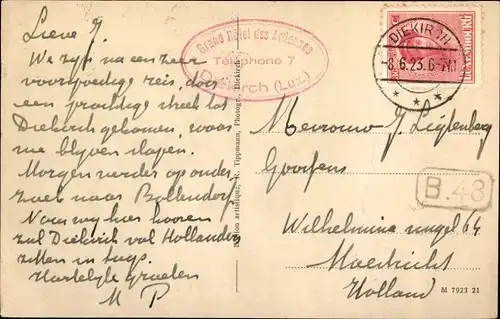 Lieve J.
We zijn na een zeer
voorspoedige reis, door
een prachtige streek tot
Diekirch gekomen, waar
we blijven slapen.
Morgen verder op onder-
zoek naar Bollendorf.
Naar wij hier hooren
zal Diekirch vol Hollanders
zitten in Aug.
Hartelijke groeten
M P
Grand Hôtel des Ardennes
Téléphone 7
Diekirch (Lux.)
DIEKIRCH
8.6.23.6-7
LUXEMBOURG
R. Tippmann, Photogr., Diekirch
Mevrouw J. Ligtenberg
Goofens
B.48
Wilhelmina singel 64
Maastricht
Holland
M 7923 21